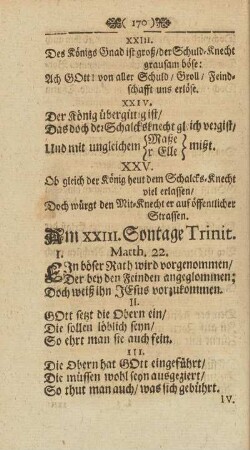 ( 170 )
XXIII.
Des Königs Gnad ist groß/ der Schuld-Knecht
grausam böse:
Ach GOtt! von aller Schuld/ Groll/ Feind-
schafft uns erlöse.
XXIV.
Der König übergütig ist/
Das doch der Schalcksknecht gleich vergist/
Und mit ungleichem {Maße / r Elle} mißt.
XXV.
Ob gleich der König heut dem Schalcks-Knecht
viel erlassen/
Doch würgt den Mit-Knecht er auf öffentlicher
Strassen.
Am XXIII. Sontage Trinit.
I. Matth. 22.
EIn böser Rath wird vorgenommen/
Der bey den Feinden angeglommen;
Doch weiß ihn JEsus vorzukommen.
II.
GOtt setzt die Obern ein/
Die sollen löblich seyn/
So ehrt man sie auch fein.
III.
Die Obern hat GOtt eingeführt/
Die müssen wohl seyn ausgeziert/
So thut man auch/ was sich gebührt.
IV.